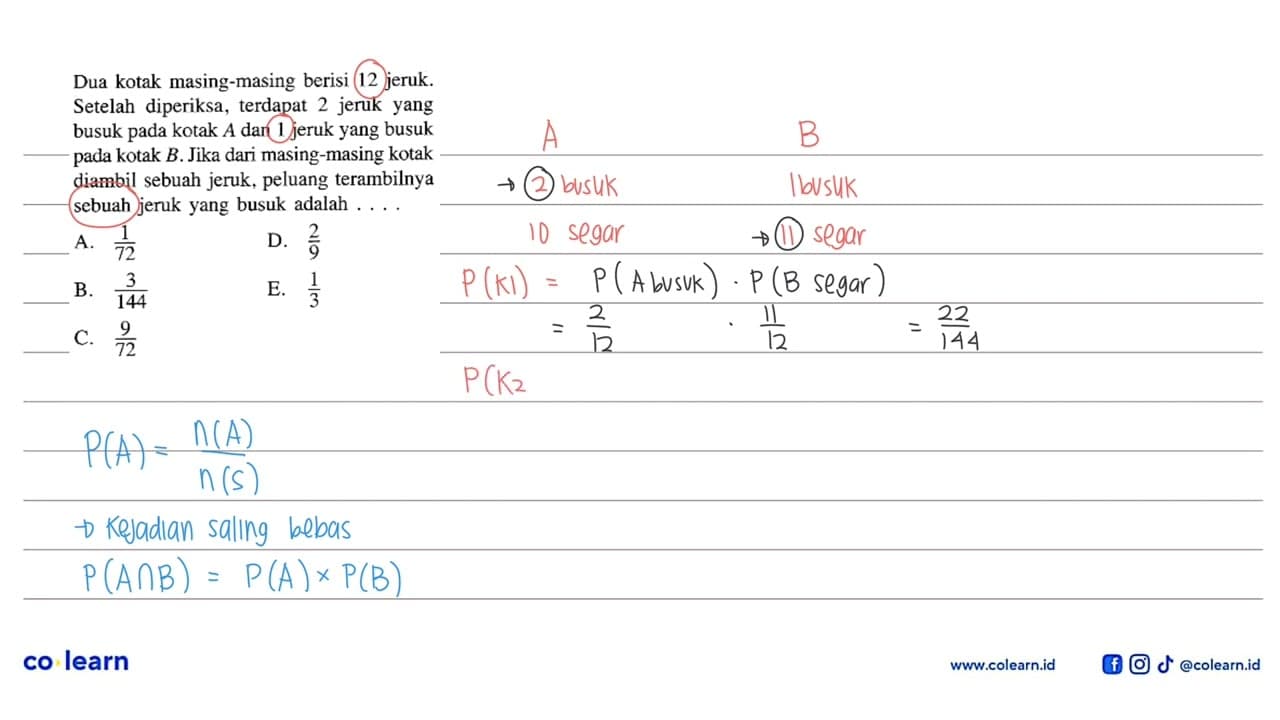 Dua kotak masing-masing berisi 12 jeruk.
Setelah diperiksa, terdapat 2 jeruk yang
busuk pada kotak A dan 1 jeruk yang busuk
pada kotak B. Jika dari masing-masing kotak
diambil sebuah jeruk, peluang terambilnya
sebuah jeruk yang busuk adalah . . . .
A. 1/72
B. 3/144
C. 9/72
D. 2/9
E. 1/3
A B
→ 2 busuk 1 busuk
10 segar → 11 segar
P(K1) = P(A busuk) . P(B segar)
= 2/12 . 11/12 = 22/144
P(K2
P(A) = n(A)/n(S)
→ Kejadian saling bebas
P(A∩B) = P(A) × P(B)
co learn
www.colearn.id @colearn.id